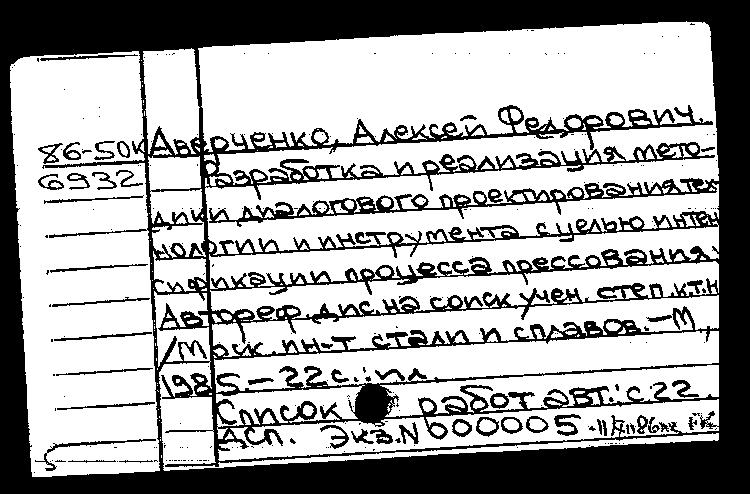 86-50к Аверченко, Алексей Федорович.
6932 Разработка и реализация мето-
дики диалогового проектирования тех-
нологии и инструмента с целью интен
сификации процесса прессования:
Автореф. дис. на соиск. учен. степ. к.т.н
/Моск. ин-т стали и сплавов. – М.,
1985. – 22 с.: ил.
Список работ авт.: с 22.
Дсп. Экз. N 000005